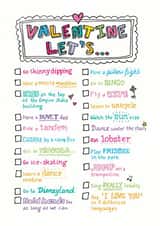 VALENTINE
LET'S...
Go skinny dipping
Have a
KISS at the top of
the Empire State
building
Have a
Ride a tandem
Cuddle by a cosy fire
Go ice-skating
Learn a dance
routine
Go to Disneyland
Hold hands for
as long as we can
Have a pillow fight
Go to BINGO
Fly a
Learn to unicycle
Watch the sun rise
Dance under the stars
Eat lobster
Play FRISBEE
in the park
JUMP on a
trampoline
Sing REALLY loudly
Say "I LOVE YOU"
in 5 different
languages